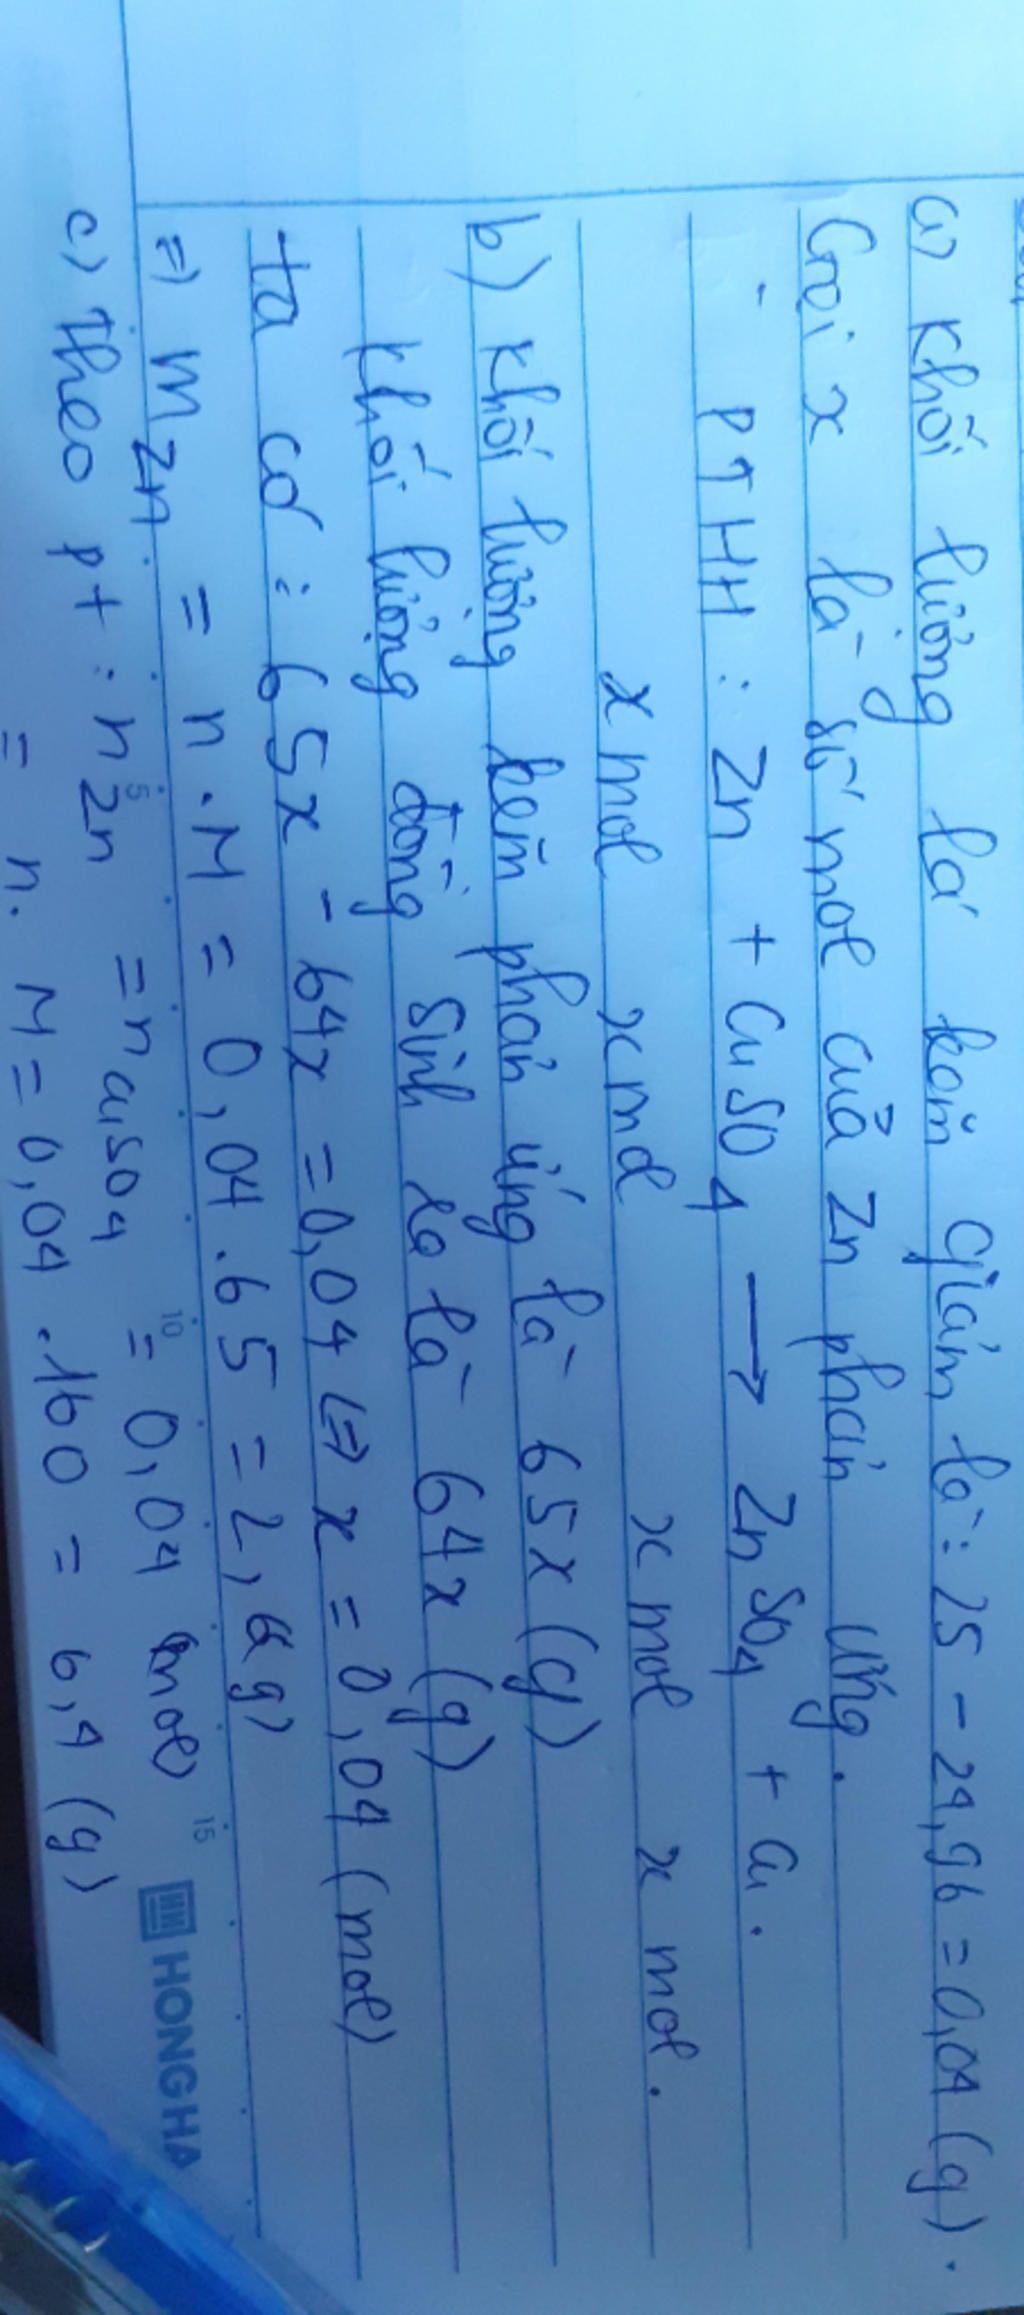 a) Khối lượng lá kẽm giảm là: 25 - 24,96 = 0,04 (g).
Gọi x là số mol của Zn phản ứng.
- PTHH: Zn + CuSO4 → ZnSO4 + Cu.
x mol x mol x mol x mol.
b) Khối lượng kẽm phản ứng là 65x (g)
Khối lượng đồng sinh ra là 64x (g)
ta có: 65x - 64x = 0,04 <=> x = 0,04 (mol)
=> mZn = n.M = 0,04.65 = 2,6 g)
c) Theo pt: nZn = nCuSO4 = 0,04 mol)
= n.M = 0,04.160 = 6,4 (g)
5 10 15 HONG HA